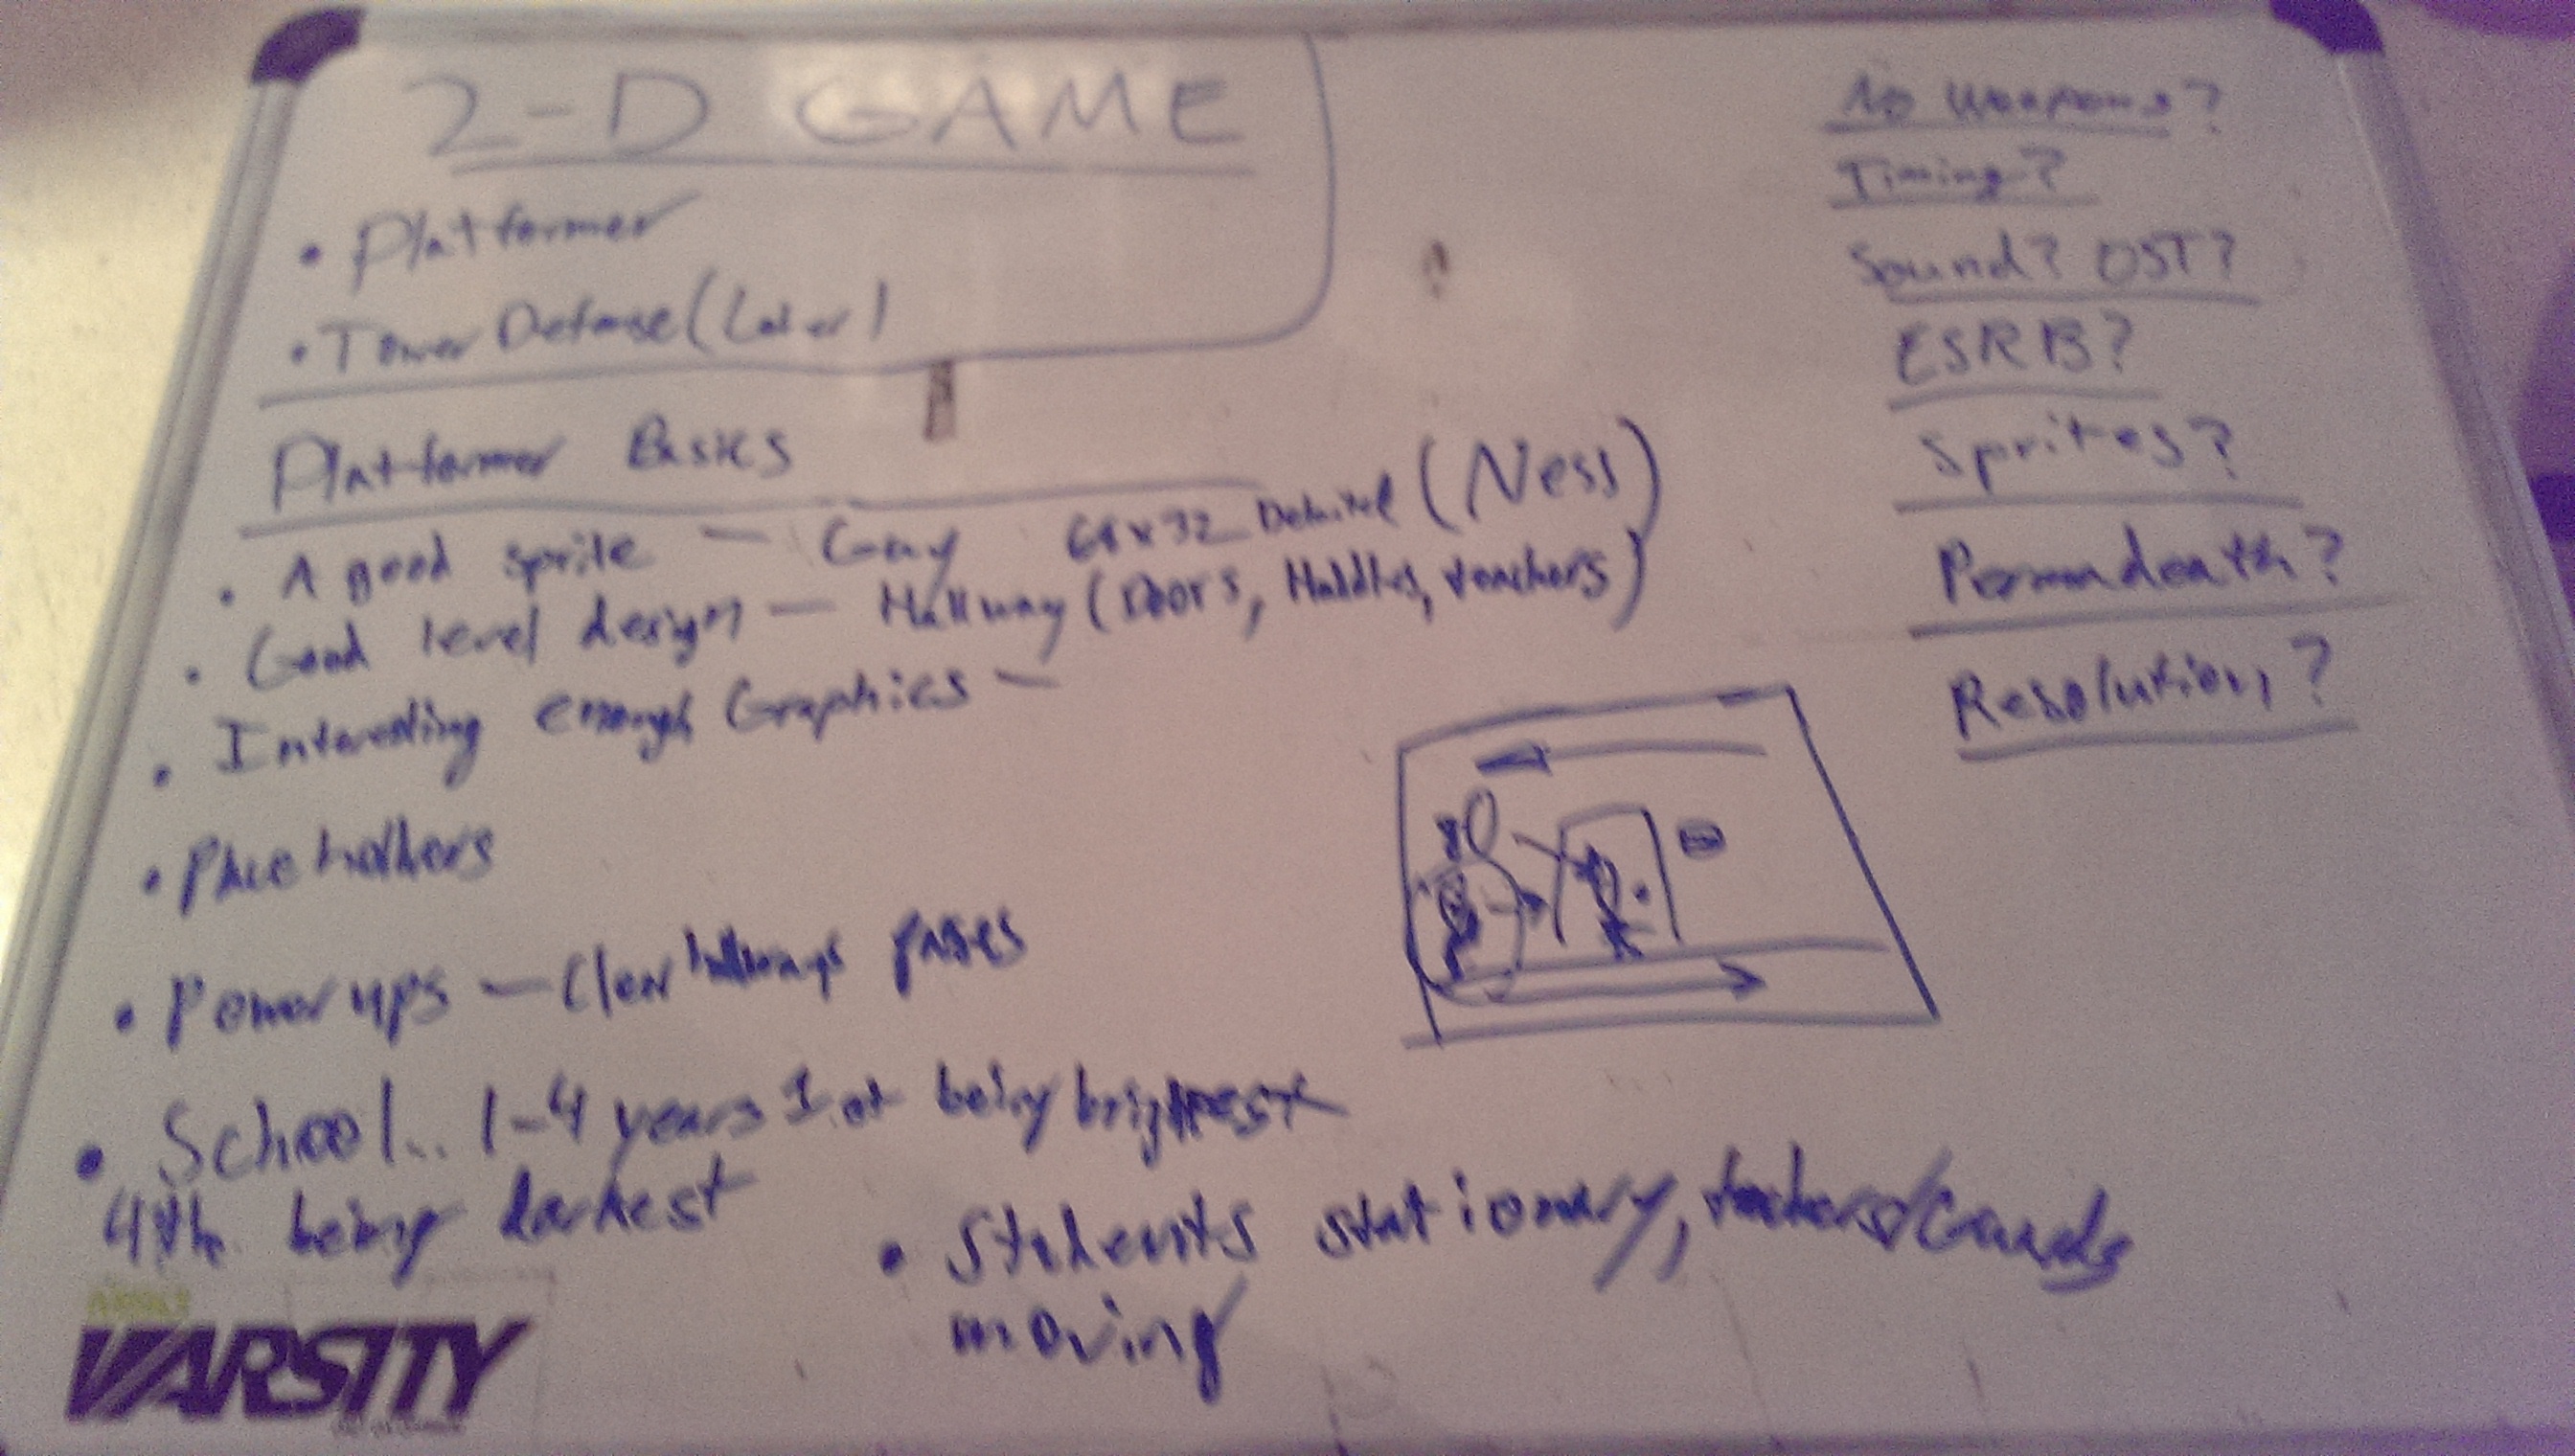 2-D GAME
• Platformer
• Tower Defense (Later)
Platformer Basics
• A good sprite — 64x32 Detailed (Ness)
• Good level design — Hallway (Doors, Huddles, teachers)
• Interesting enough Graphics —
• Place holders
• Power ups — Clear hallways passes
• School.. 1-4 years 1st being brightest
4th being darkest
• Students stationary, teachers/Guards
moving
No Weapons?
Timing?
Sound? OST?
ESRB?
Sprites?
Permadeath?
Resolution?
VARSITY